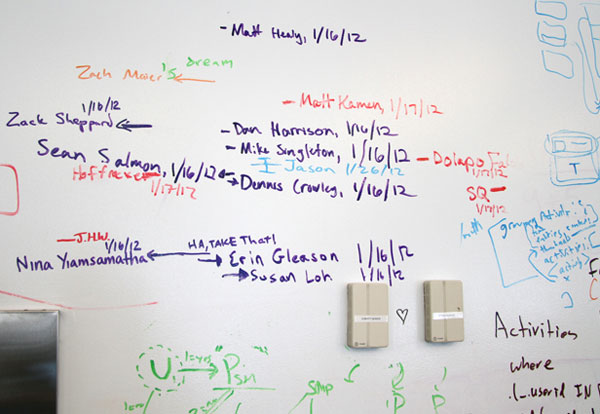 - Matt Healy, 1/16/12
Zach Maier's dream
- Matt Kamen, 1/17/12
1/16/12
Zack Sheppard
- Dan Harrison, 1/16/12
- Mike Singleton, 1/16/12
Sean Salmon, 1/16/12
Jason 1/26/12
- Dolapo
1/17/12
Hoffmeier
1/17/12
Dennis Crowley, 1/16/12
SQ
1/17/12
T
- J.H.W.
1/16/12
Nina Yiamsamatha
HA, TAKE THAT!
Erin Gleason 1/16/12
Susan Loh 1/16/12
grouping
activities
activity
Activities
where
U
"Psn"